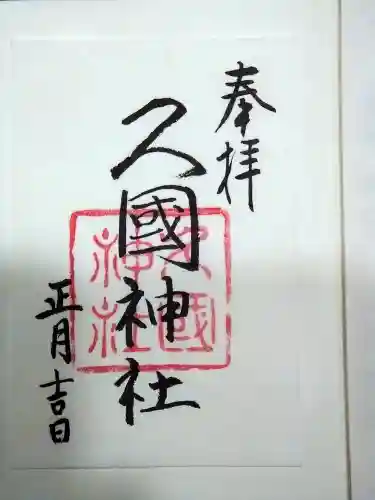 奉拝
久國神社
久國
神社
正月吉日